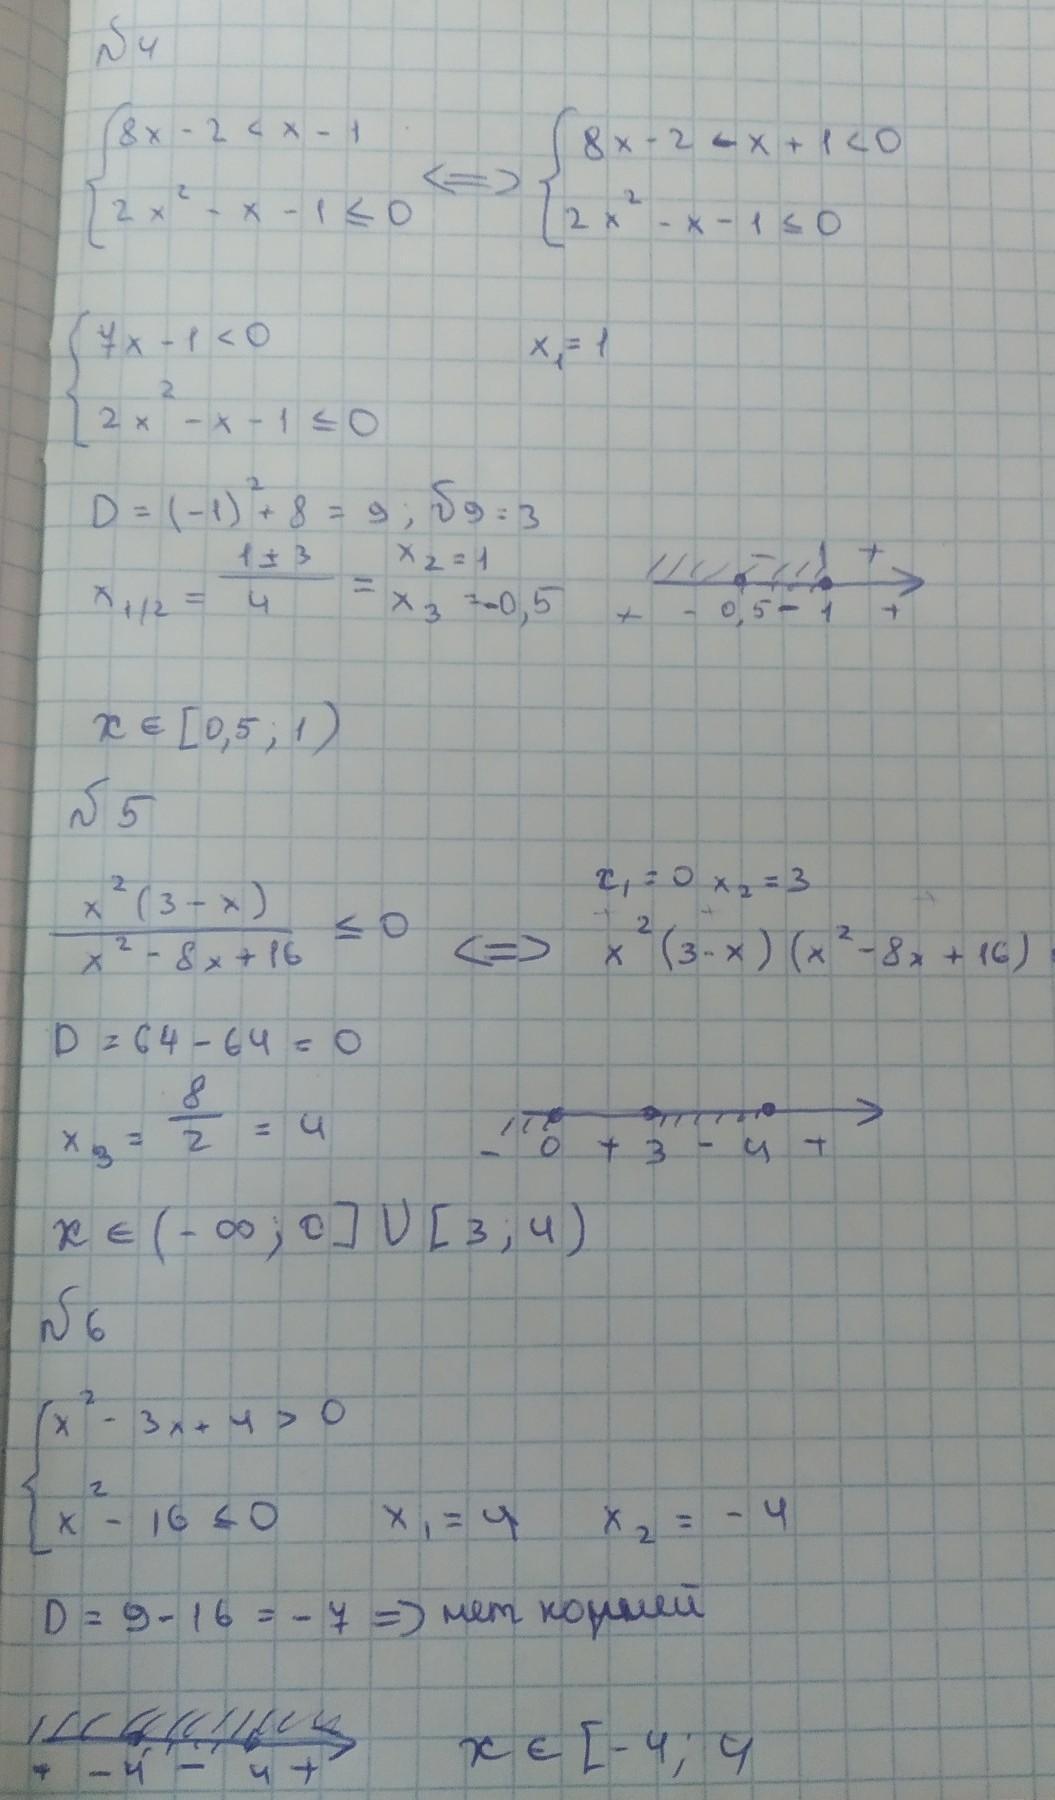 №4
{ 8x - 2 < x - 1 <=> { 8x - 2 - x + 1 < 0
2x² - x - 1 ≤ 0 2x² - x - 1 ≤ 0
{ 7x - 1 < 0 x₁ = 1
2x² - x - 1 ≤ 0
D = (-1)² + 8 = 9; √9 = 3
x₁/₂ = (1 ± 3)/4 = x₂ = 1 x₃ = -0,5
- 1 +
+ - 0,5 - 1 +
x ∈ [0,5; 1)
№5
x₁ = 0 x₂ = 3
x²(3 - x)/(x² - 8x + 16) ≤ 0 <=> x²(3 - x)(x² - 8x + 16)
D = 64 - 64 = 0
x₃ = 8/2 = 4
- 0 + 3 - 4 +
x ∈ (-∞; 0] ∪ [3; 4)
№6
{ x² - 3x + 4 > 0
x² - 16 ≤ 0 x₁ = 4 x₂ = -4
D = 9 - 16 = -7 => нет корней
+ -4 - 4 + x ∈ [-4; 4